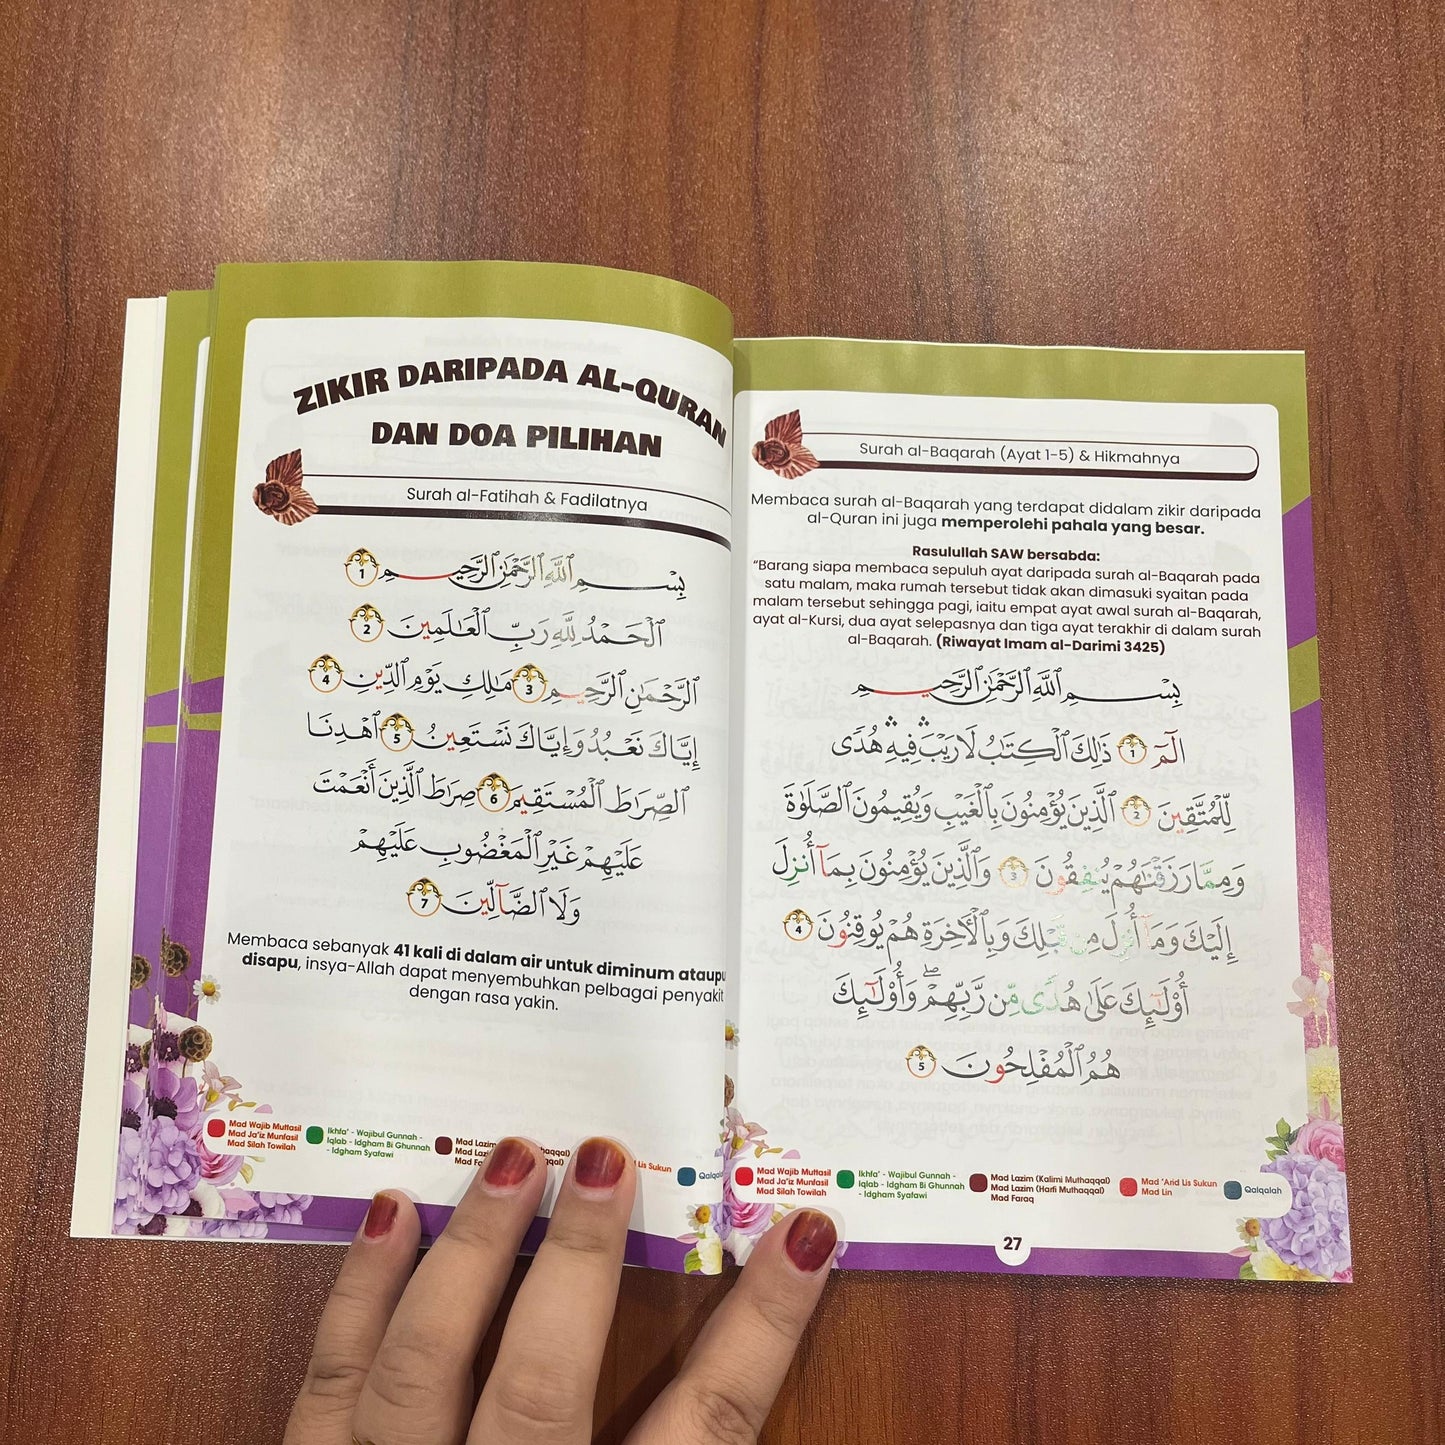 ZIKIR DARIPADA AL-QURAN
DAN DOA PILIHAN
Surah al-Fatihah & Fadilatnya
بِسْمِ ٱللَّهِ ٱلرَّحْمَٰنِ ٱلرَّحِيمِ 1
ٱلْحَمْدُ لِلَّهِ رَبِّ ٱلْعَٰلَمِينَ 2
ٱلرَّحْمَٰنِ ٱلرَّحِيمِ 3 مَٰلِكِ يَوْمِ ٱلدِّينِ 4
إِيَّاكَ نَعْبُدُ وَإِيَّاكَ نَسْتَعِينُ 5 ٱهْدِنَا
ٱلصِّرَٰطَ ٱلْمُسْتَقِيمَ 6 صِرَٰطَ ٱلَّذِينَ أَنْعَمْتَ
عَلَيْهِمْ غَيْرِ ٱلْمَغْضُوبِ عَلَيْهِمْ
وَلَا ٱلضَّآلِّينَ 7
Membaca sebanyak 41 kali di dalam air untuk diminum ataupu
disapu, insya-Allah dapat menyembuhkan pelbagai penyakit
dengan rasa yakin.
Mad Wajib Muttasil
Mad Ja'iz Munfasil
Mad Silah Towilah
Ikhfa' - Wajibul Gunnah -
Iqlab - Idgham Bi Ghunnah
- Idgham Syafawi
Mad Lazim
Lis Sukun
Surah al-Baqarah (Ayat 1-5) & Hikmahnya
Membaca surah al-Baqarah yang terdapat didalam zikir daripada
al-Quran ini juga memperolehi pahala yang besar.
Rasulullah SAW bersabda:
"Barang siapa membaca sepuluh ayat daripada surah al-Baqarah pada
satu malam, maka rumah tersebut tidak akan dimasuki syaitan pada
malam tersebut sehingga pagi, iaitu empat ayat awal surah al-Baqarah,
ayat al-Kursi, dua ayat selepasnya dan tiga ayat terakhir di dalam surah
al-Baqarah. (Riwayat Imam al-Darimi 3425)
بِسْمِ ٱللَّهِ ٱلرَّحْمَٰنِ ٱلرَّحِيمِ
الٓمٓ 1 ذَٰلِكَ ٱلْكِتَٰبُ لَا رَيْبَ ۛ فِيهِ ۛ هُدًى
لِّلْمُتَّقِينَ 2 ٱلَّذِينَ يُؤْمِنُونَ بِٱلْغَيْبِ وَيُقِيمُونَ ٱلصَّلَوٰةَ
وَمِمَّا رَزَقْنَٰهُمْ يُنفِقُونَ 3 وَٱلَّذِينَ يُؤْمِنُونَ بِمَآ أُنزِلَ
إِلَيْكَ وَمَآ أُنزِلَ مِن قَبْلِكَ وَبِٱلْءَاخِرَةِ هُمْ يُوقِنُونَ 4
أُو۟لَٰٓئِكَ عَلَىٰ هُدًى مِّن رَّبِّهِمْ ۖ وَأُو۟لَٰٓئِكَ
هُمُ ٱلْمُفْلِحُونَ 5
Mad Wajib Muttasil
Mad Ja'iz Munfasil
Mad Silah Towilah
Ikhfa' - Wajibul Gunnah -
Iqlab - Idgham Bi Ghunnah
- Idgham Syafawi
Mad Lazim (Kalimi Muthaqqal)
Mad Lazim (Harfi Muthaqqal)
Mad Faraq
Mad 'Arid Lis Sukun
Mad Lin
Qalqalah
27